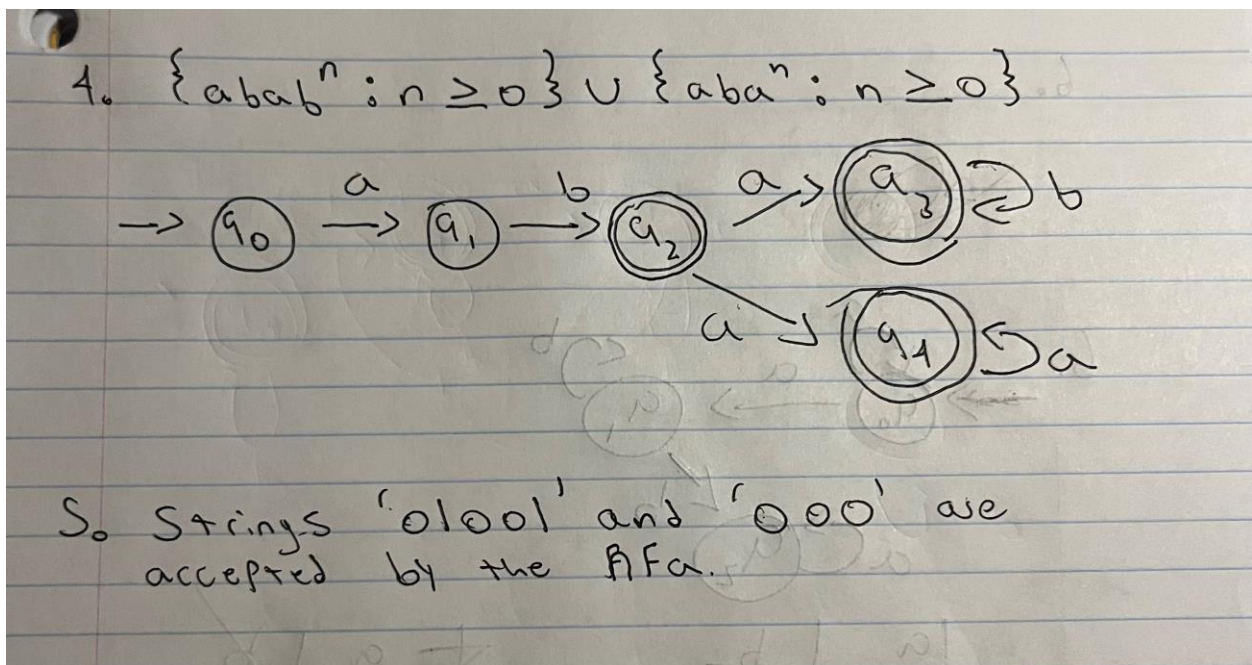 4. {abab^n : n ≥ 0} ∪ {aba^n : n ≥ 0}
a b a q3 b
→ q0 → q1 → q2
a q4 a
5. Strings '01001' and '000' are
accepted by the nfa.